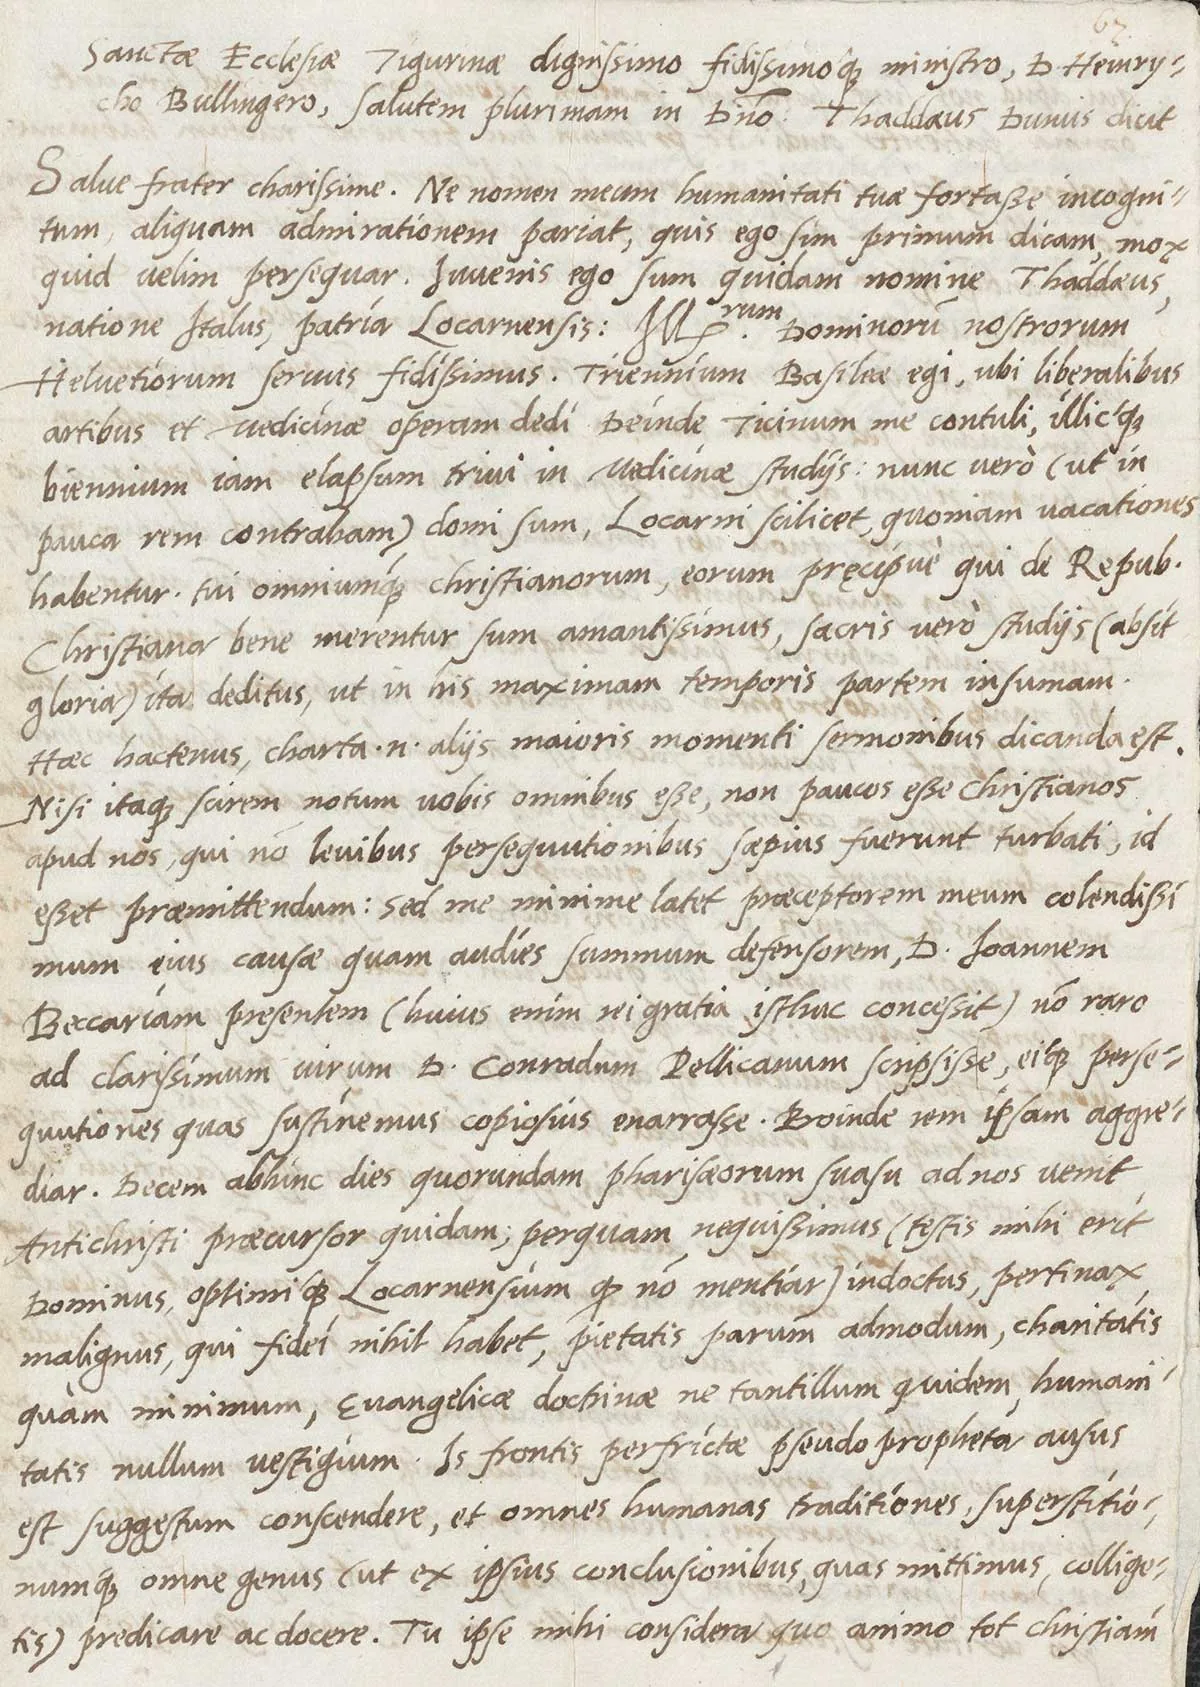 67
Sanctæ Ecclesiæ Tigurinæ dignissimo fidissimoq́ꝫ ministro, D Heinry-
cho Bullingero, salutem plurimam in Dn̄o. Thaddæus Dunus dicit
Salue frater charissime. Ne nomen meum humanitati tuæ fortasse incogni-
tum, aliquam admirationem pariat, quis ego sim primum dicam, mox
quid uelim persequar. Iuuenis ego sum quidam nomine Thaddæus,
natione Italus, patria Locarnensis: Ill. rum Dominorū nostrorum
Heluetiorum seruus fidissimus. Triennium Basileæ egi, ubi liberalibus
artibus et Medicinæ operam dedi Deinde Ticinum me contuli, illicq́ꝫ
biennium iam elapsum triui in Medicinæ studijs: nunc uerò (ut in
pauca rem contraham) domi sum, Locarni scilicet, quoniam uacationes
habentur. tui omniumq́ꝫ christianorum, eorum pręcipuè qui de Repub.
Christiana bene merentur sum amantissimus, sacris uerò studijs (absit
gloria) ita deditus, ut in his maximam temporis partem insumam.
Hæc hactenus, charta .n. alijs maioris momenti sermonibus dicanda est.
Nisi itaqꝫ scirem notum uobis omnibus esse, non paucos esse Christianos
apud nos, qui nō leuibus persequutionibus sæpius fuerunt turbati, id
esset præmittendum: sed me minime latet præceptorem meum colendissi
mum eius causæ quam audies summum defensorem, D. Ioannem
Beccariam presentem (huius enim rei gratia isthuc concessit) nō raro
ad clarissimum uirum D. Conradum Pellicanum scripsisse, eiq́ꝫ perse-
quutiones quas sustinemus copiosius enarrasse. Proinde rem ipsam aggre-
diar. Decem abhinc dies quorundam pharisæorum suasu ad nos uenit
Antichristi præcursor quidam, perquam nequissimus (testis mihi erit
Dominus, optimiq́ꝫ Locarnensium qꝫ nō mentiar) indoctus, pertinax,
malignus, qui fidei nihil habet, pietatis parum admodum, charitatis
quàm minimum, Euangelicæ doctrinæ ne tantillum quidem, humani-
tatis nullum uestigium. Is frontis perfrictæ pseudopropheta ausus
est suggestum conscendere, et omnes humanas traditiones, superstitio-
numq́ꝫ omne genus (ut ex ipsius conclusionibus, quas mittimus, collige-
tis) predicare ac docere. Tu ipse mihi considera quo animo tot christiani